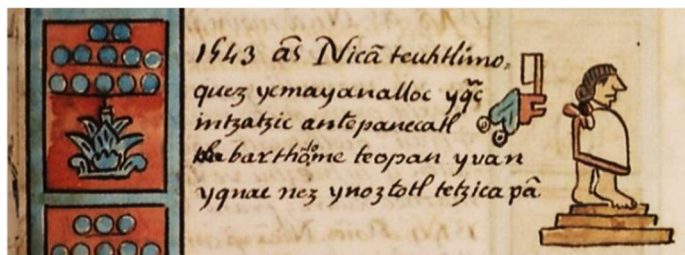 1543 ās Nicā teuhtlimo,
quez yemayanalloc yqc̄
intzatzic antopanecatl
barthome teopan yvan
yqnac nez ynoztotl tetzicapā.